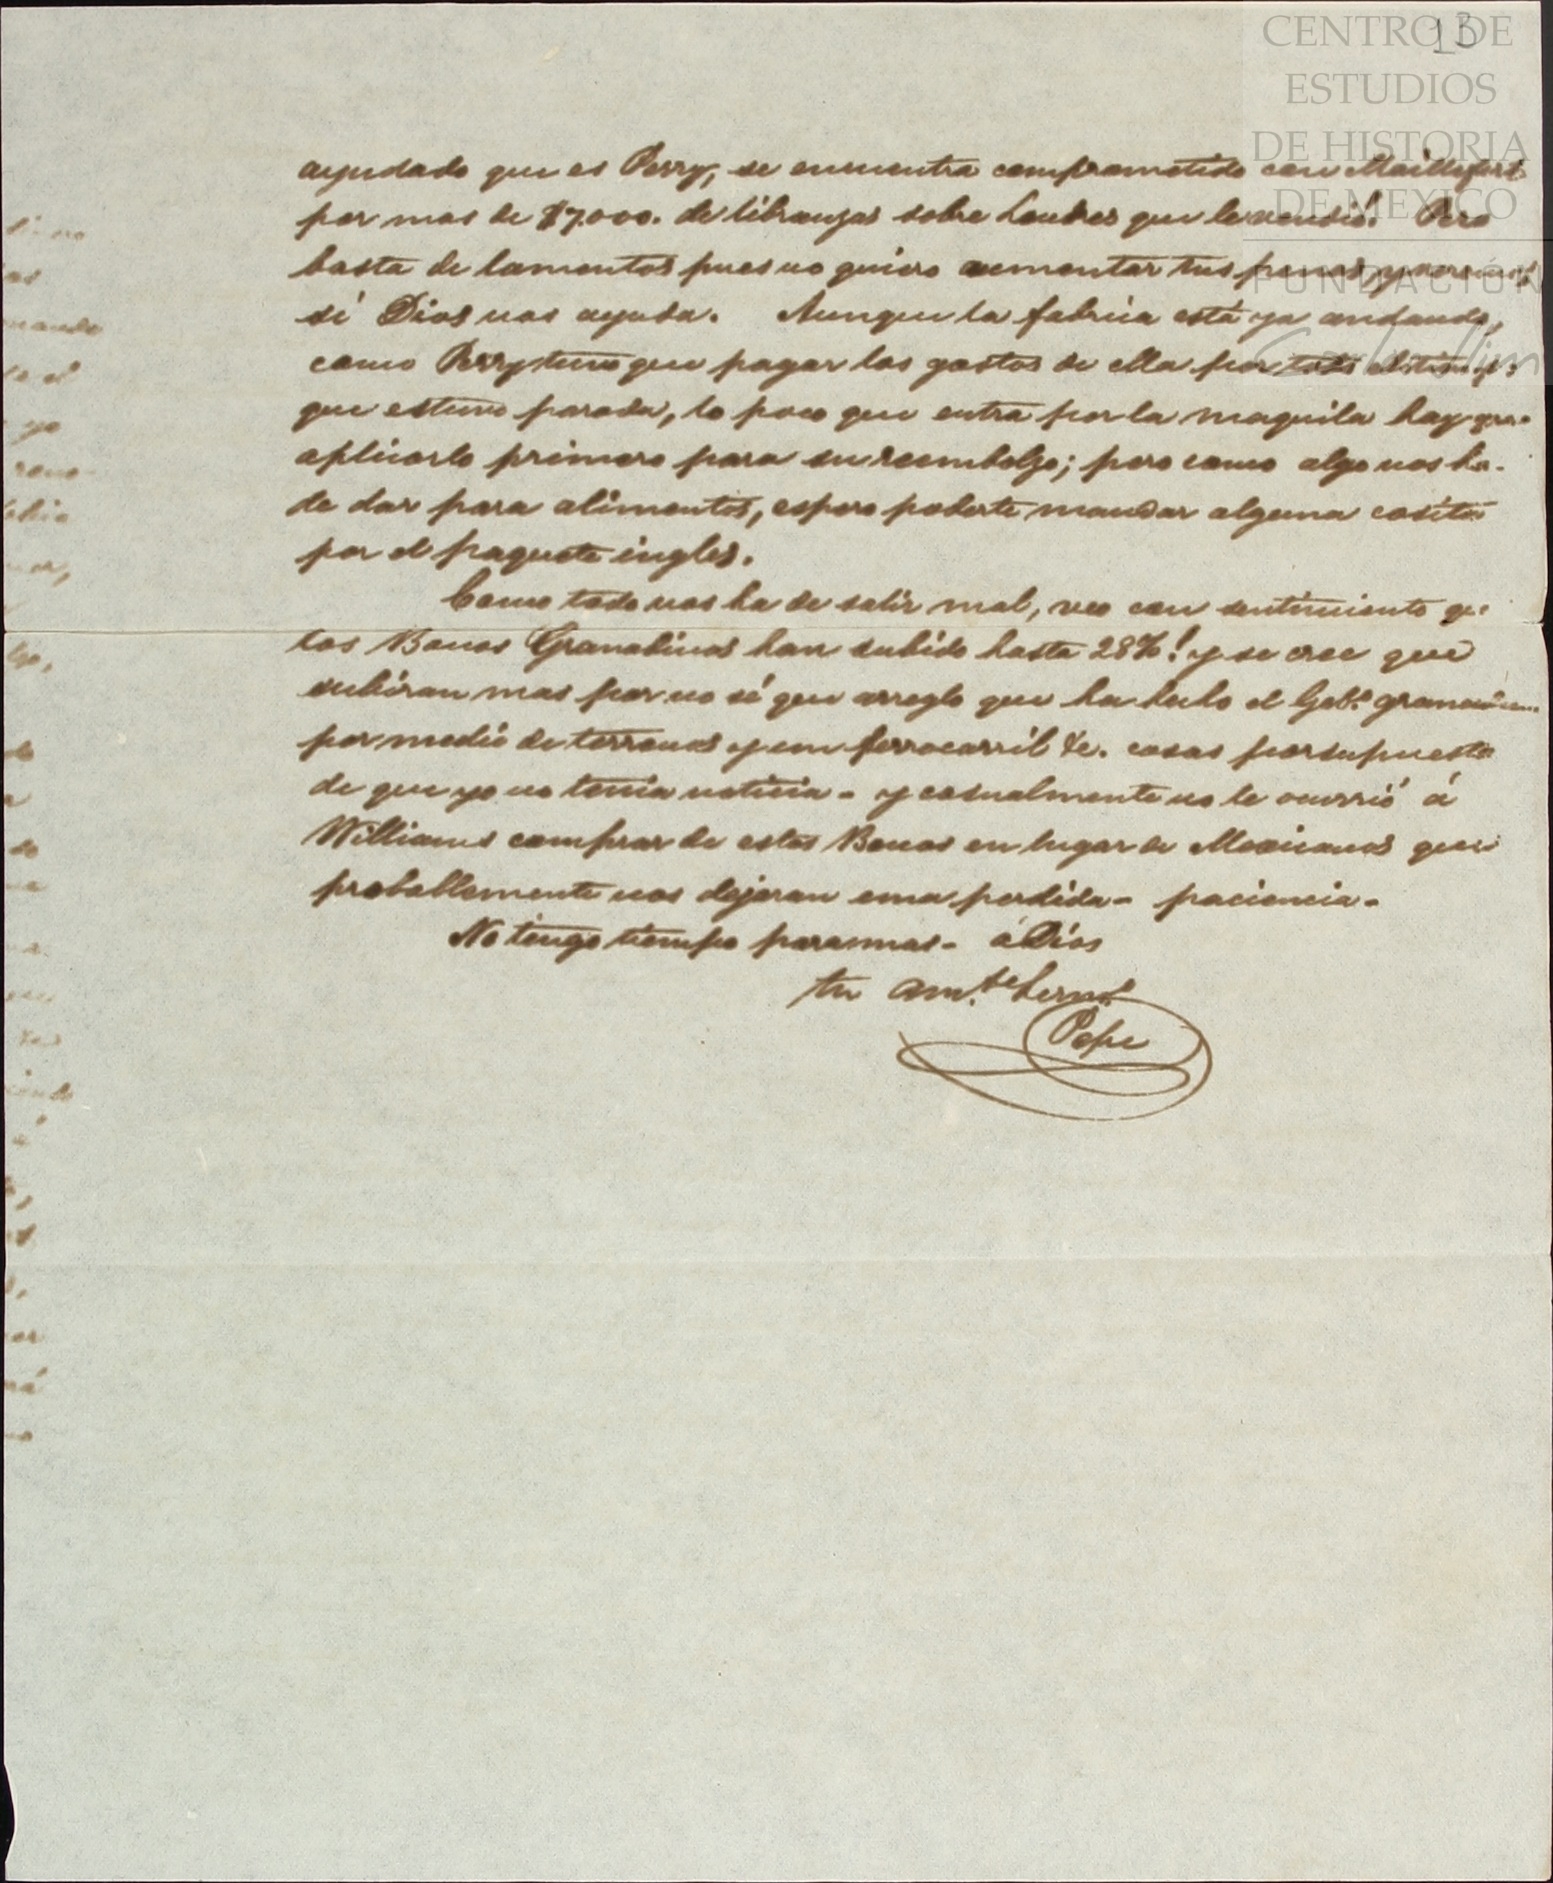 13
CENTRO DE
ESTUDIOS
DE HISTORIA
DE MEXICO
FUNDACIÓN
ayudado que es Perry, se encuentra comprometido con Maillefert
por mas de $7.000. de libranzas sobre Londres que le vendió! Pero
basta de lamentos pues no quiero aumentar tus penas, y veremos
si Dios nos ayuda. Aunque la fabrica está ya andando,
como Perry tuvo que pagar los gastos de ella por todo el tiempo
que estuvo parada, lo poco que entra por la maquila hay que
aplicarlo primero para su reembolzo; pero como algo nos ha
de dar para alimentos, espero poderte mandar alguna cosita
por el paquete ingles.
Como todo nos ha de salir mal, veo con sentimiento qe
los Bonos Granadinos han subido hasta 28%! y se cree que
subiran mas por no sé que arreglo que ha hecho el Gobo.
por medio de terrenos y un ferrocarril &c. cosas por supuesto
de que yo no tenia noticia - y casualmente no le ocurrió á
Williams comprar de estos Bonos en lugar de Mexicanos que
probablemente nos dejaran una perdida - paciencia -
No tengo tiempo para mas - á Dios
tu amte. herno.
Pepe